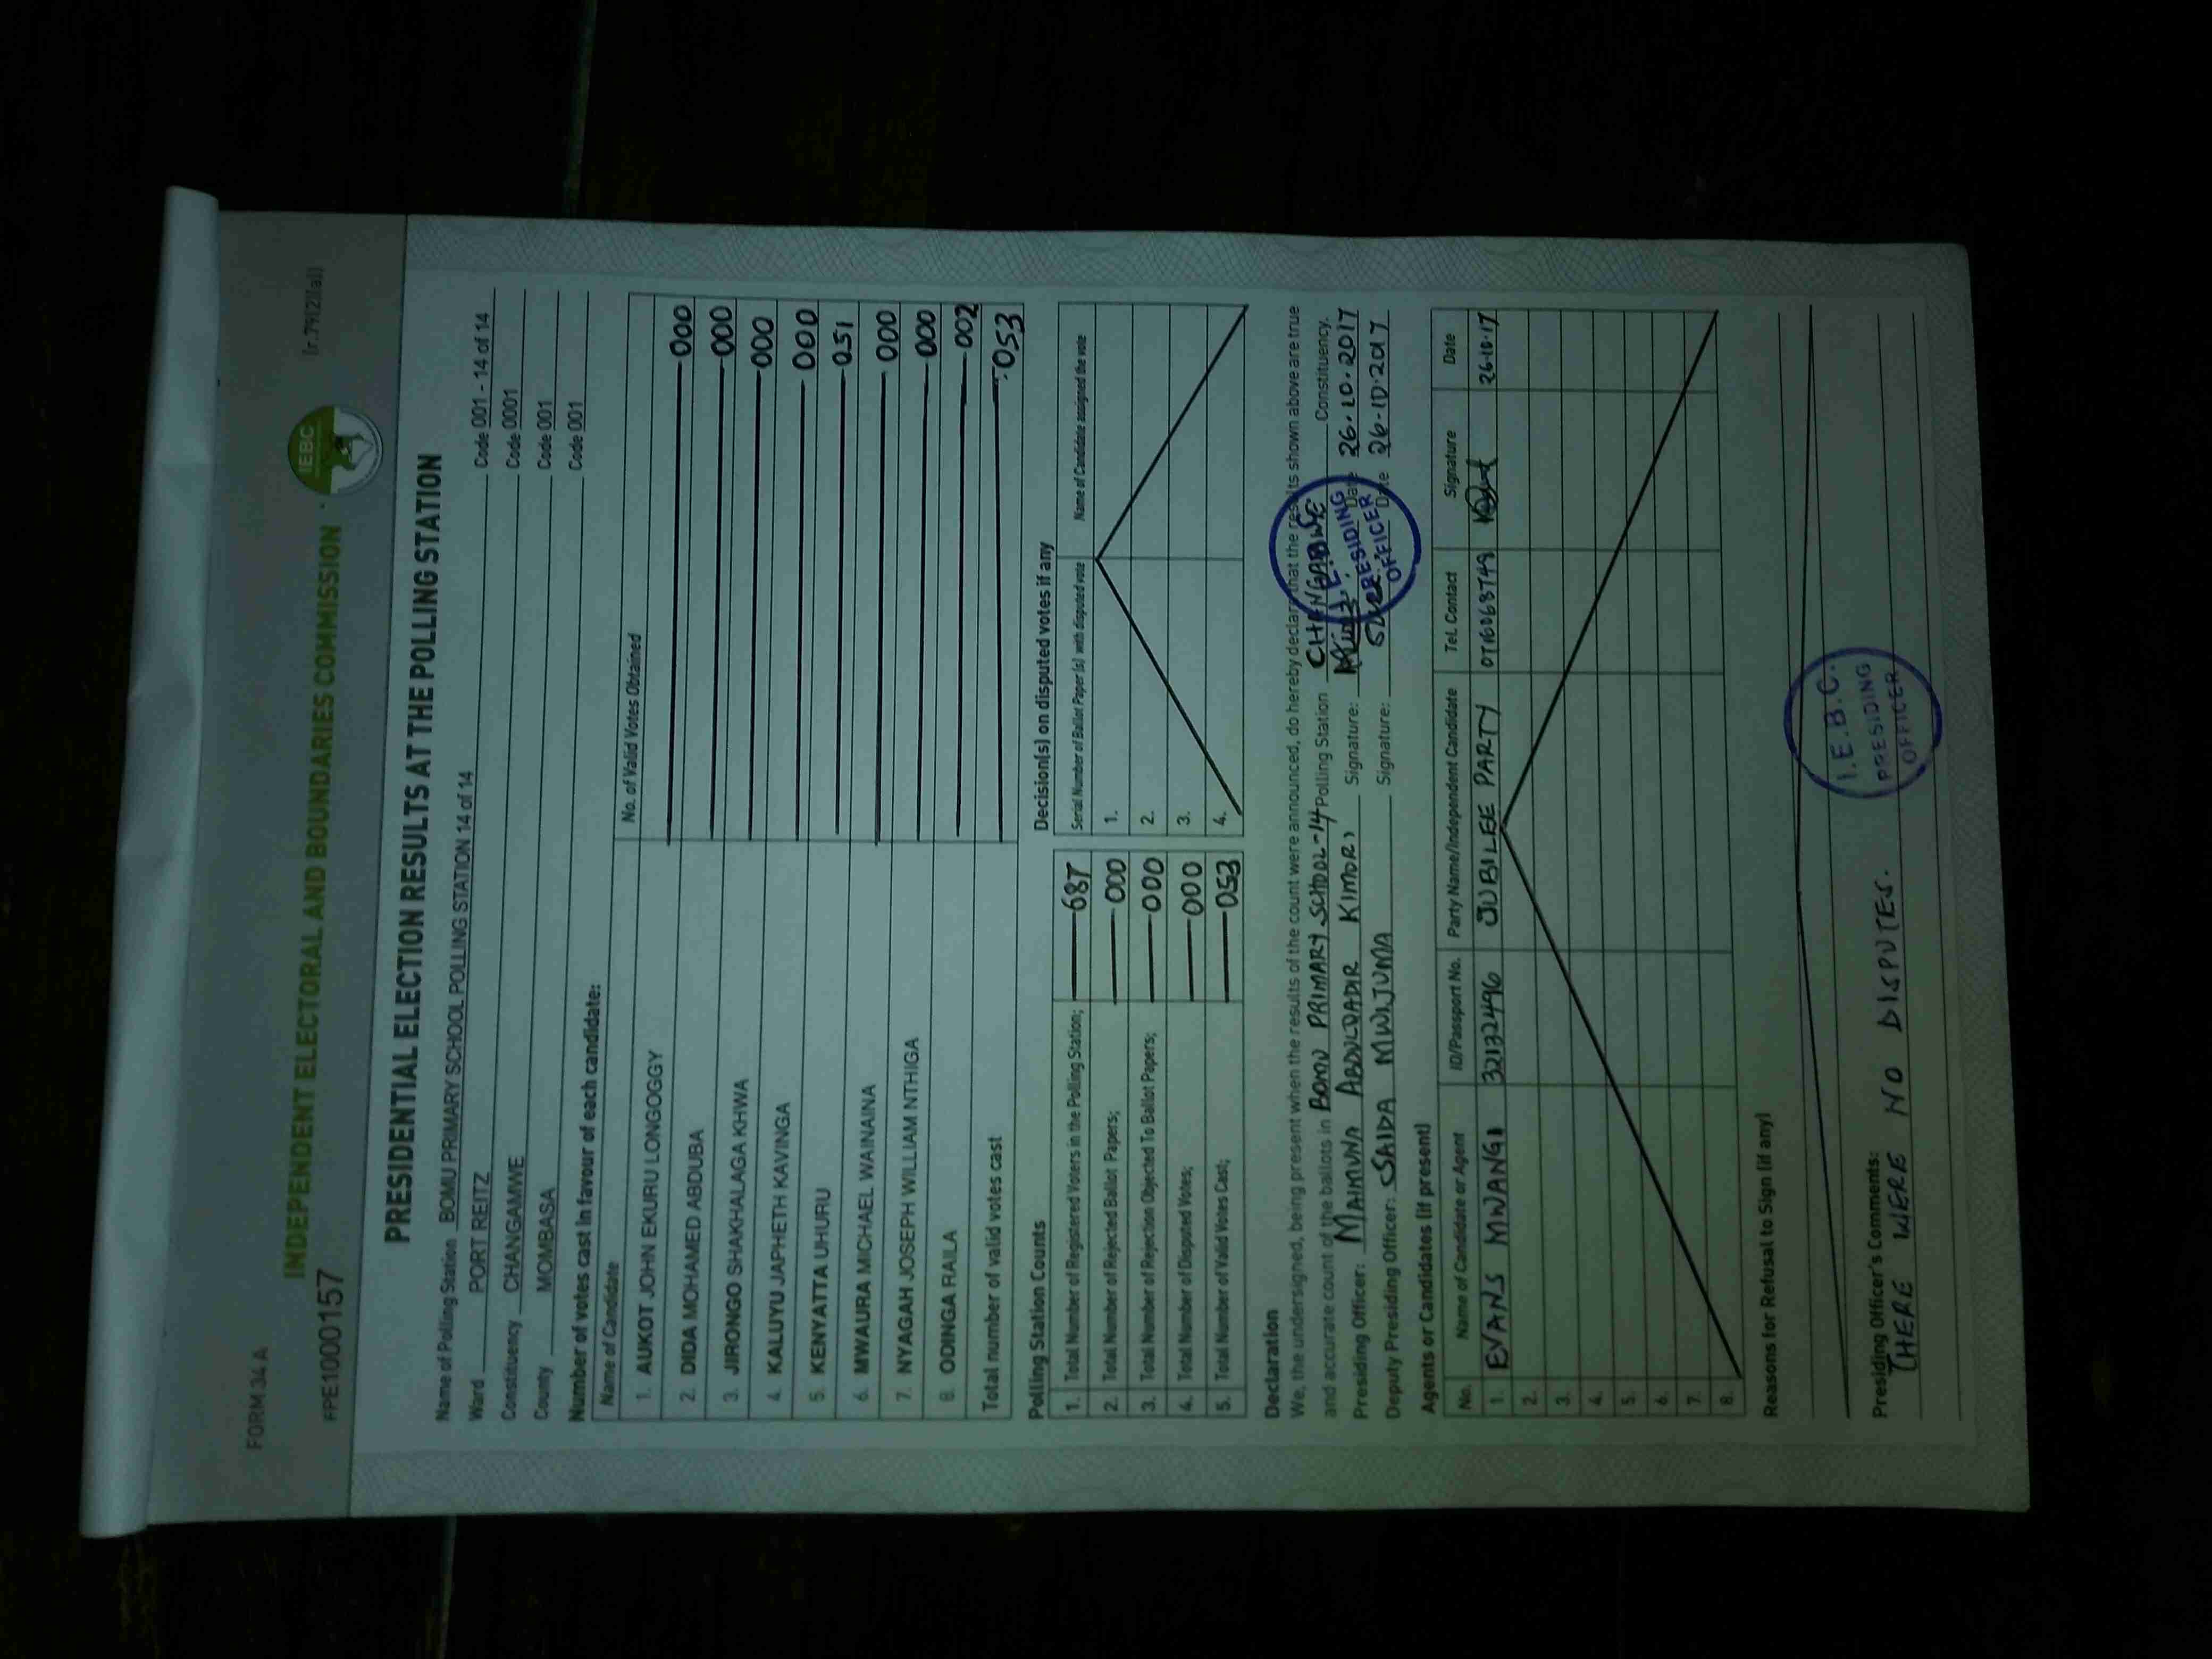 FORM 34 A
INDEPENDENT ELECTORAL AND BOUNDARIES COMMISSION
IEBC
FPE1000157
PRESIDENTIAL ELECTION RESULTS AT THE POLLING STATION
Name of Polling Station BOMU PRIMARY SCHOOL POLLING STATION 14 of 14 Code 001 - 14 of 14
Ward PORT REITZ Code 0001
Constituency CHANGAMWE Code 001
County MOMBASA Code 001
Number of votes cast in favour of each candidate:
Name of Candidate No. of Valid Votes Obtained
1. AUKOT JOHN EKURU LONGOGGY 000
2. DIDA MOHAMED ABDUBA 000
3. JIRONGO SHAKHALAGA KHWA 000
4. KALUYU JAPHETH KAVINGA 000
5. KENYATTA UHURU 051
6. MWAURA MICHAEL WAINAINA 000
7. NYAGAH JOSEPH WILLIAM NTHIGA 000
8. ODINGA RAILA 002
Total number of valid votes cast 053
Polling Station Counts
1. Total Number of Registered Voters in the Polling Station; 687
2. Total Number of Rejected Ballot Papers; 000
3. Total Number of Rejection Objected To Ballot Papers; 000
4. Total Number of Disputed Votes; 000
5. Total Number of Valid Votes Cast; 053
Decision(s) on disputed votes if any
Serial Number of Ballot Paper (s) with disputed vote Name of Candidate assigned the vote
1.
2.
3.
4.
Declaration
We, the undersigned, being present when the results of the count were announced, do hereby declare that the results shown above are true
and accurate count of the ballots in BOMU PRIMARY SCHOOL-14 Polling Station CHANGAMWE Constituency.
Presiding Officer: MAIMUNA ABDULQADIR KIMORI Signature: Date 26.10.2017
Deputy Presiding Officer: SAIDA MWIJUMA Signature: Date 26.10.2017
I.E.B.C.
PRESIDING
OFFICER
Agents or Candidates (if present)
No. Name of Candidate or Agent ID/Passport No. Party Name/Independent Candidate Tel. Contact Signature Date
1. EVANS MWANGI 32132496 JUBILEE PARTY 0716068749 26.10.17
2.
3.
4.
5.
6.
7.
8.
Reasons for Refusal to Sign (if any)
Presiding Officer's Comments:
THERE WERE NO DISPUTES.
I.E.B.C.
PRESIDING
OFFICER